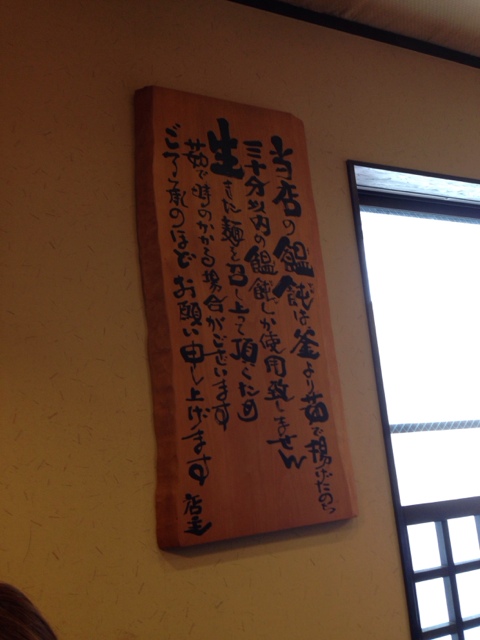 当店の饂飩は釜より茹で揚げたのち
三十分以内の饂飩しか使用致しません
生きた麺を召し上って頂くため
茹で時のかかる場合がございます
ご了承のほどお願い申し上げます
店主